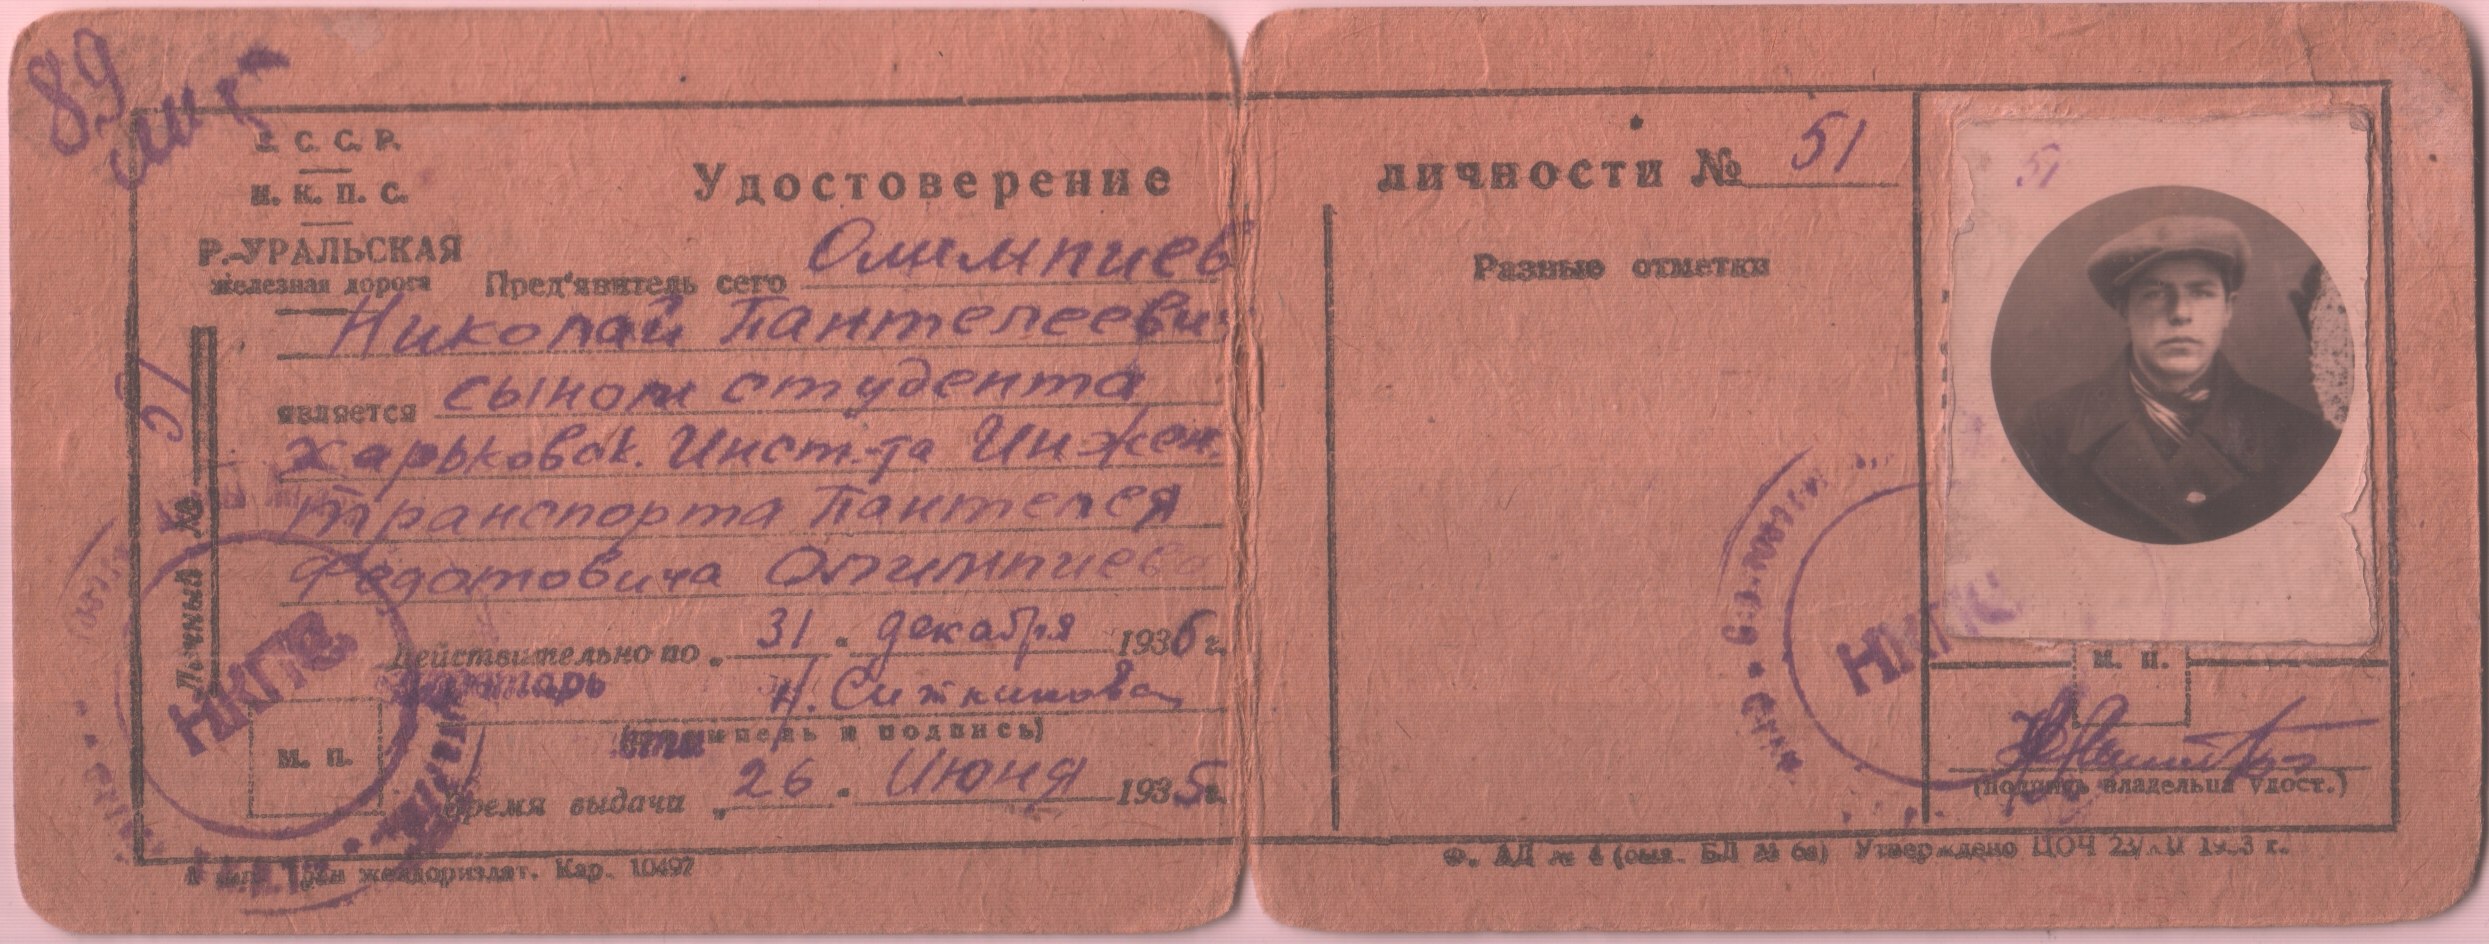 89
С. С. Р.
Н. К. П. С.
Р.-УРАЛЬСКАЯ
железная дорога
Личный № 51
Удостоверение личности № 51
Пред'явитель сего Олимпиев
Николай Пантелеевич
является сыном студента
Харьковск. Инст-та Инжен.
транспорта Пантелея
Федотовича Олимпиева
Действительно по „ 31 " декабря 1936 г.
(штемпель и подпись)
М. П.
Время выдачи „ 26 " Июня 1935 г.
НКПС
Кар. 10497
Разные отметки
51
НКПС
М. П.
(подпись владельца удост.)
Ф. АД № 4 (был. БЛ № 6а) Утверждено ЦОЧ